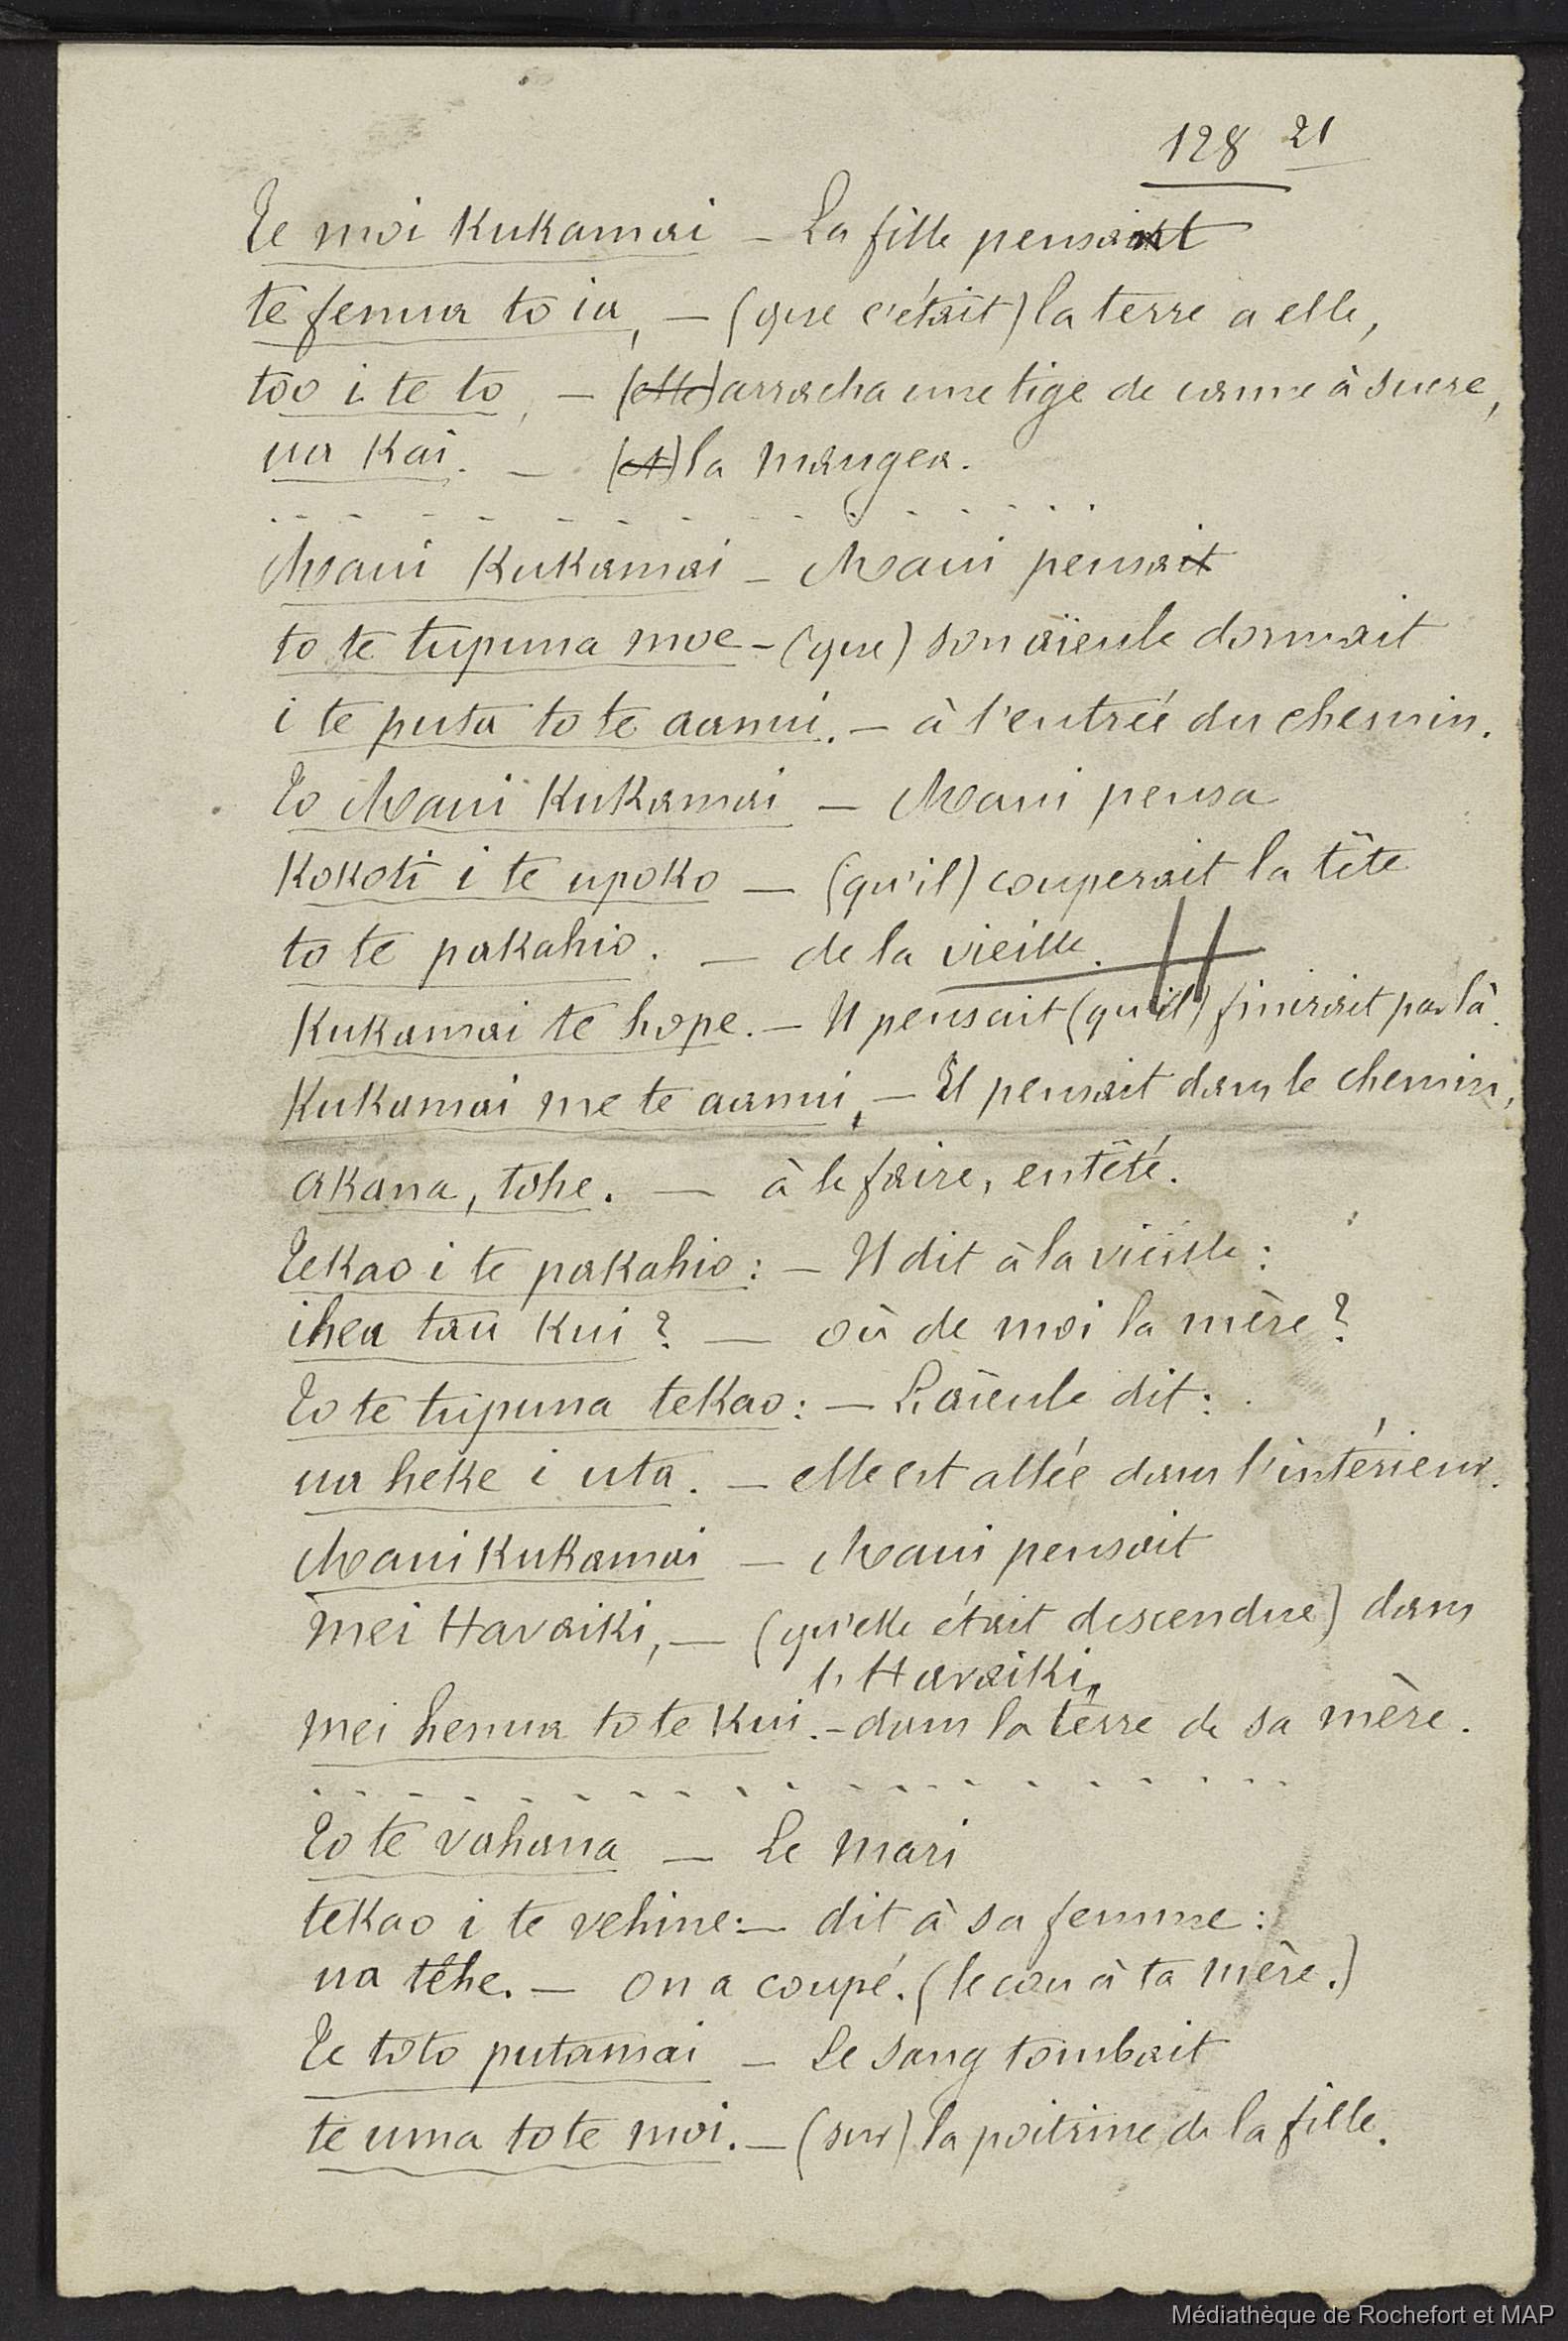 128 21
Te moi Kukamai – La fille pensait
te fenua to ia, – (que c'était) la terre a elle,
too i te to, – (elle) arracha une tige de canne à sucre,
ua Kai. – (et) la mangea.
Maui Kukamai – Maui pensait
to te tupuna moe – (que) son aïeule dormait
i te puta to te aanui. – à l'entrée du chemin.
To Maui Kukamai – Maui pensa
Kokoti i te upoko – (qu'il) couperait la tête
to te pakahio. – de la vieille.
Kukamai te hope. – Il pensait (qu'il) finirait par là.
Kukamai me te aanui, – Il pensait dans le chemin,
akana, tohe. – à le faire, entêté.
Tekao i te pakahio: – Il dit à la vieille:
ihea tau Kui? – où de moi la mère?
To te tupuna tekao: – L'aïeule dit:
ua heke i uta. – elle est allée dans l'intérieur.
Maui Kukamai – Maui pensait
mei Havaiki, – (qu'elle était descendue) dans
l'Havaiki,
mei henua to te Kui. – dans la terre de sa mère.
To te vahana – Le mari
tekao i te vehine: – dit à sa femme:
ua tehe. – on a coupé. (le cou à ta mère.)
Te toto putamai – Le sang tombait
te uma to te moi. – (sur) la poitrine de la fille.
Médiathèque de Rochefort et MAP